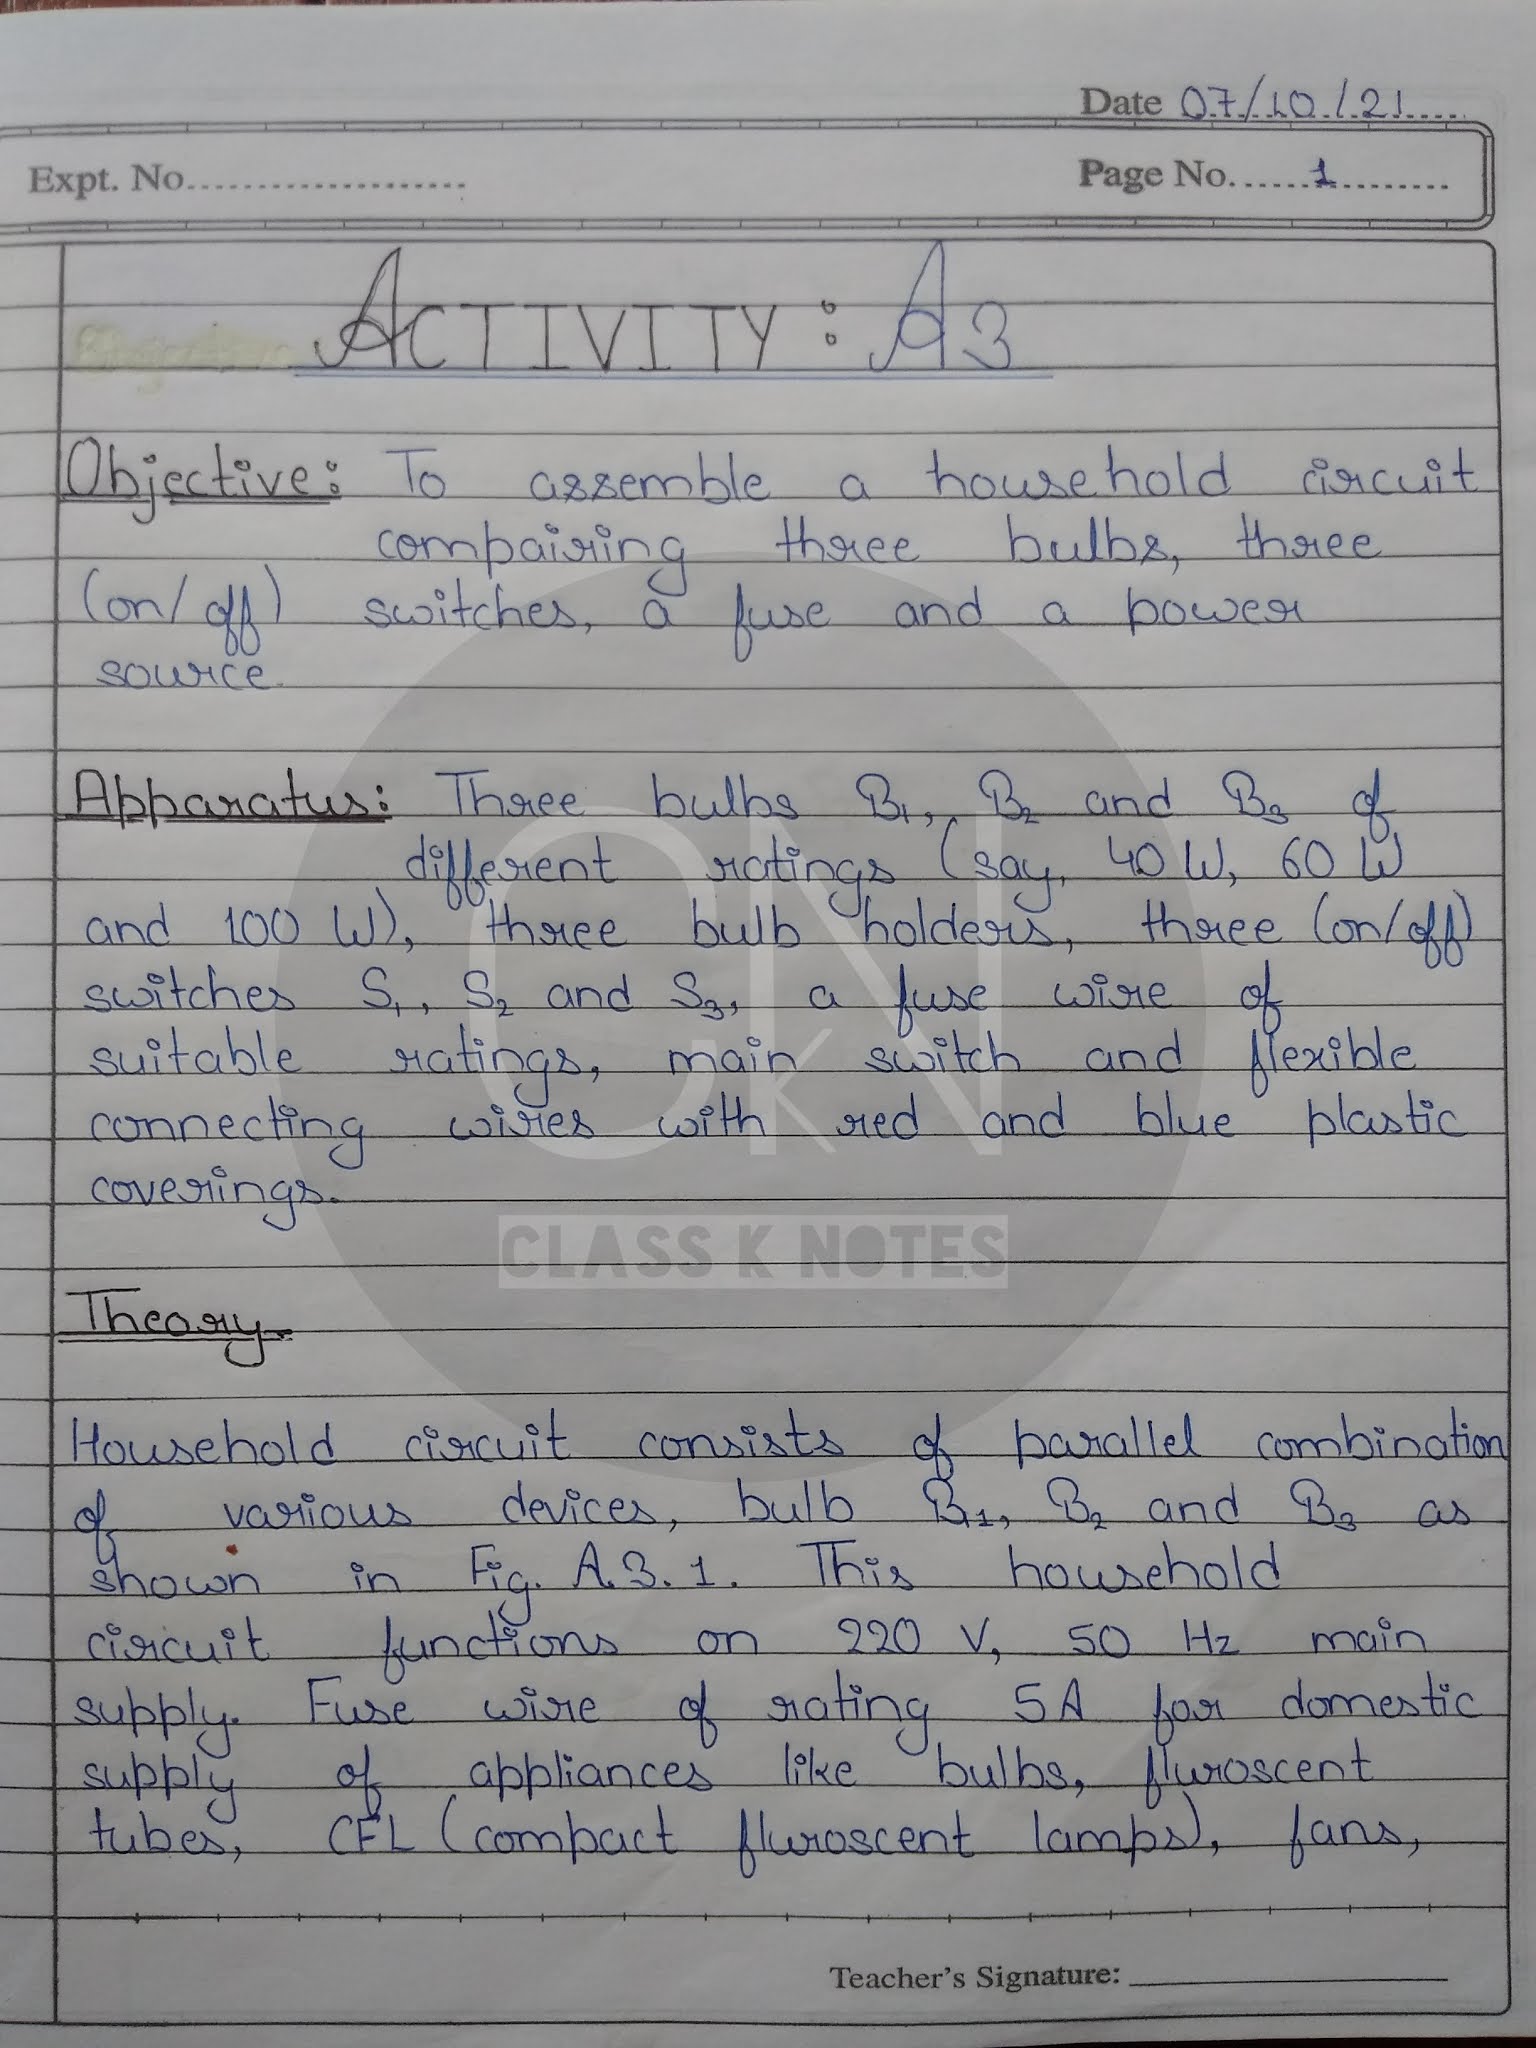 Date 07/10/21
Expt. No.
Page No. 1
ACTIVITY : A3
Objective: To assemble a household circuit
compairing three bulbs, three
(on/off) switches, a fuse and a power
source.
Apparatus: Three bulbs B1, B2 and B3 of
different ratings (say, 40 W, 60 W
and 100 W), three bulb holders, three (on/off)
switches S1, S2 and S3, a fuse wire of
suitable ratings, main switch and flexible
connecting wires with red and blue plastic
coverings.
CKN
CLASS K NOTES
Theory
Household circuit consists of parallel combination
of various devices, bulb B1, B2 and B3 as
shown in Fig. A.3.1. This household
circuit functions on 220 V, 50 Hz main
supply. Fuse wire of rating 5A for domestic
supply of appliances like bulbs, fluroscent
tubes, CFL (compact fluroscent lamps), fans,
Teacher's Signature: